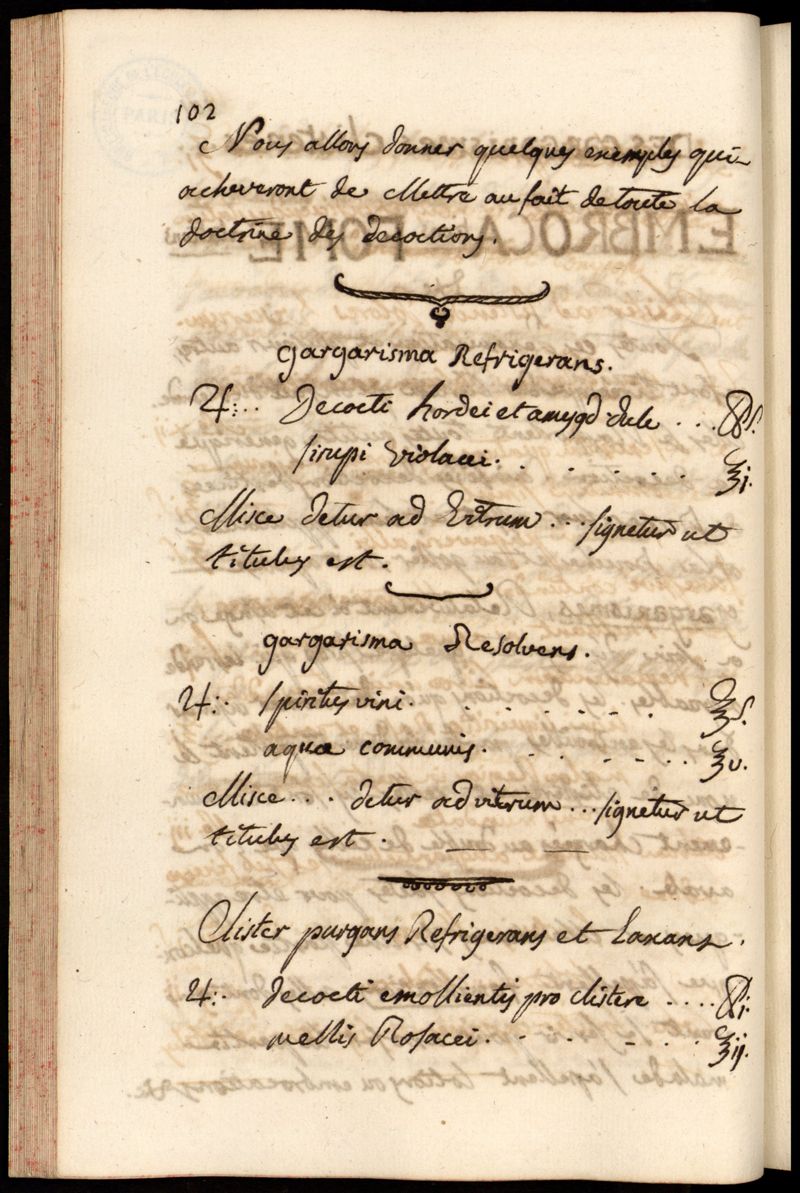 102
Nous allons donner quelques exemples qui
acheveront de Mettre au fait de toute la
doctrine des decoctions.
gargarisma Refrigerans.
♃:.. Decocti hordei et amygddule ... ℔ß.
sirupi violacei. . . . . . . ℥j.
Misce detur ad Vitrum ... signetur ut
titules est.
gargarisma Resolvens.
♃:. spirites vini. . . . . . . ℥ß.
aquæ communis. . . . . . . ℥v.
Misce ... detur ad vitrum ... signetur ut
titules est.
Clister purgans Refrigerans et Laxans.
♃:. decocti emollientis pro clistere .... ℔j.
mellis Rosacei. . . . . . ℥ij.